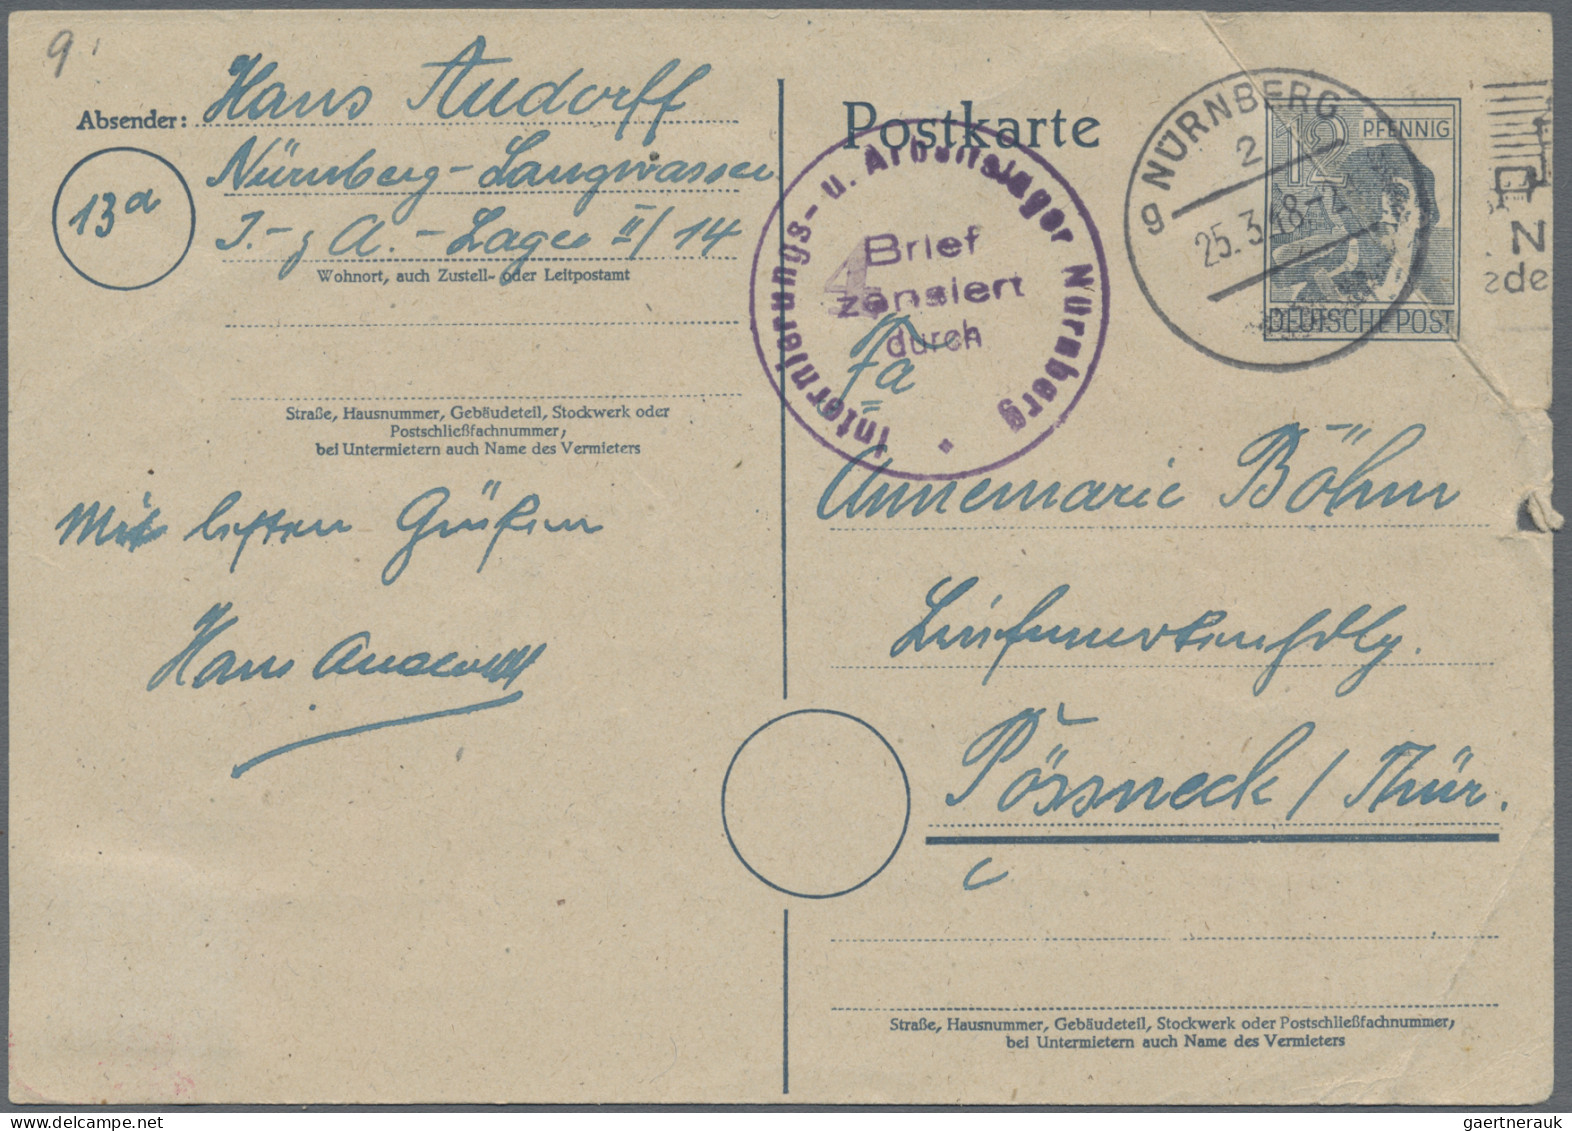 9.
Absender: Hans Audorff
Nürnberg-Langwasser
13a
I.- z A.- Lager II/14
Wohnort, auch Zustell- oder Leitpostamt
Straße, Hausnummer, Gebäudeteil, Stockwerk oder
Postschließfachnummer,
bei Untermietern auch Name des Vermieters
Mit besten Grüßen
Hans
Postkarte
Internierungs- u. Arbeitslager Nürnberg
Brief
zensiert
durch
4
NÜRNBERG
2
25.3.48
g
12 PFENNIG
DEUTSCHE POST
Z
de
Fa
Annemarie Böhm
Pössneck / Thür.
Straße, Hausnummer, Gebäudeteil, Stockwerk oder Postschließfachnummer,
bei Untermietern auch Name des Vermieters
gaertnerauk @ delcampe.net